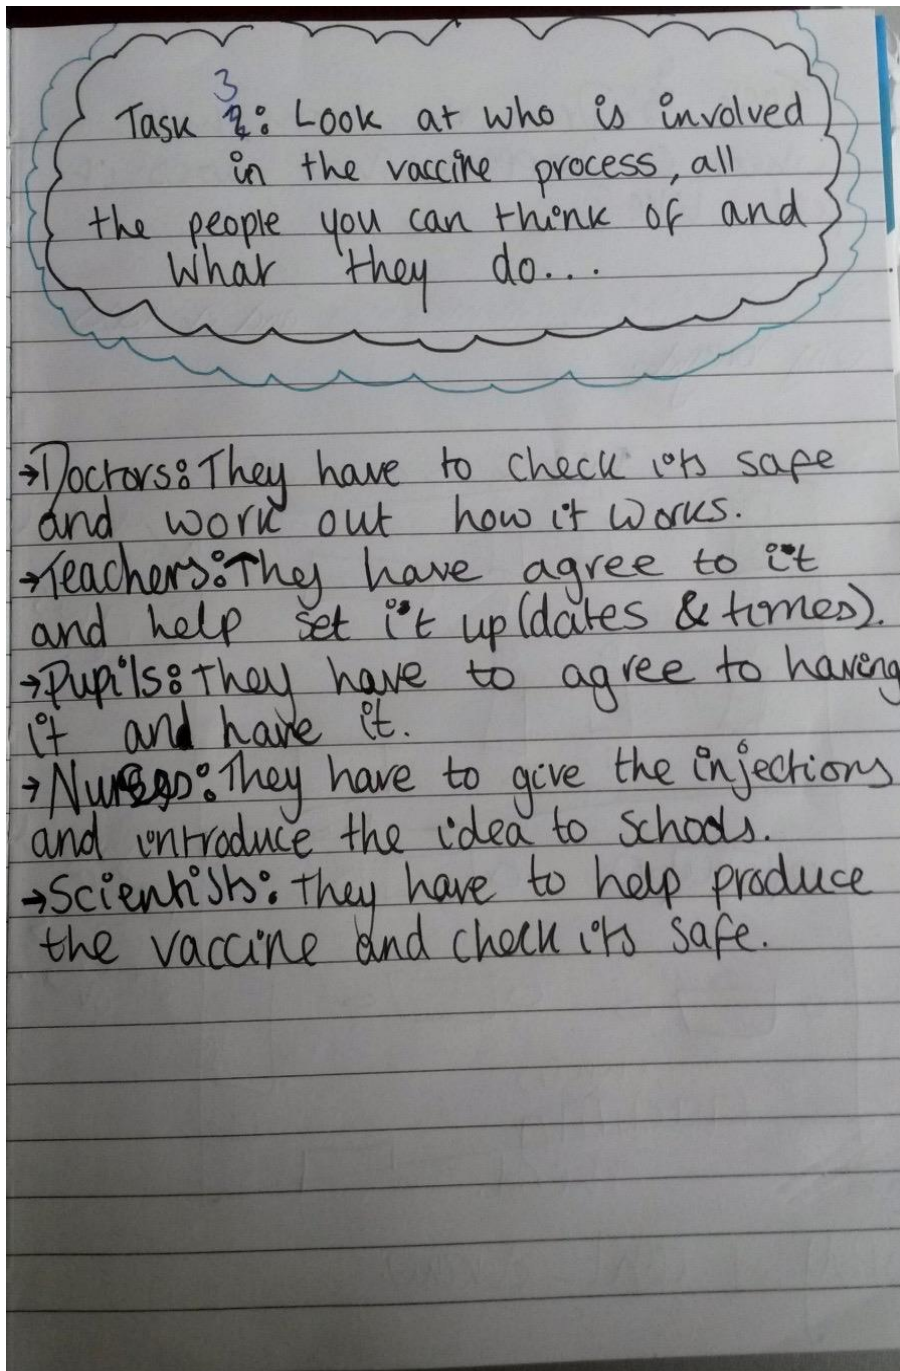 Task 3: Look at who is involved
in the vaccine process, all
the people you can think of and
what they do...
→Doctors: They have to check its safe
and work out how it works.
→Teachers: They have agree to it
and help set it up (dates & times).
→Pupils: They have to agree to having
it and have it.
→Nurses: They have to give the injections
and introduce the idea to schools.
→Scientists: They have to help produce
the vaccine and check its safe.